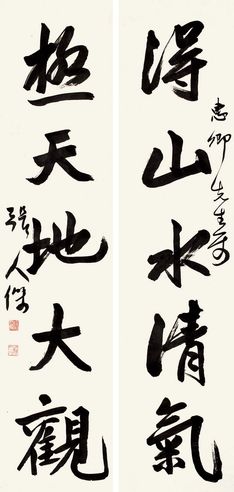 得山水清氣
惠卿先生屬
極天地大觀
張人傑